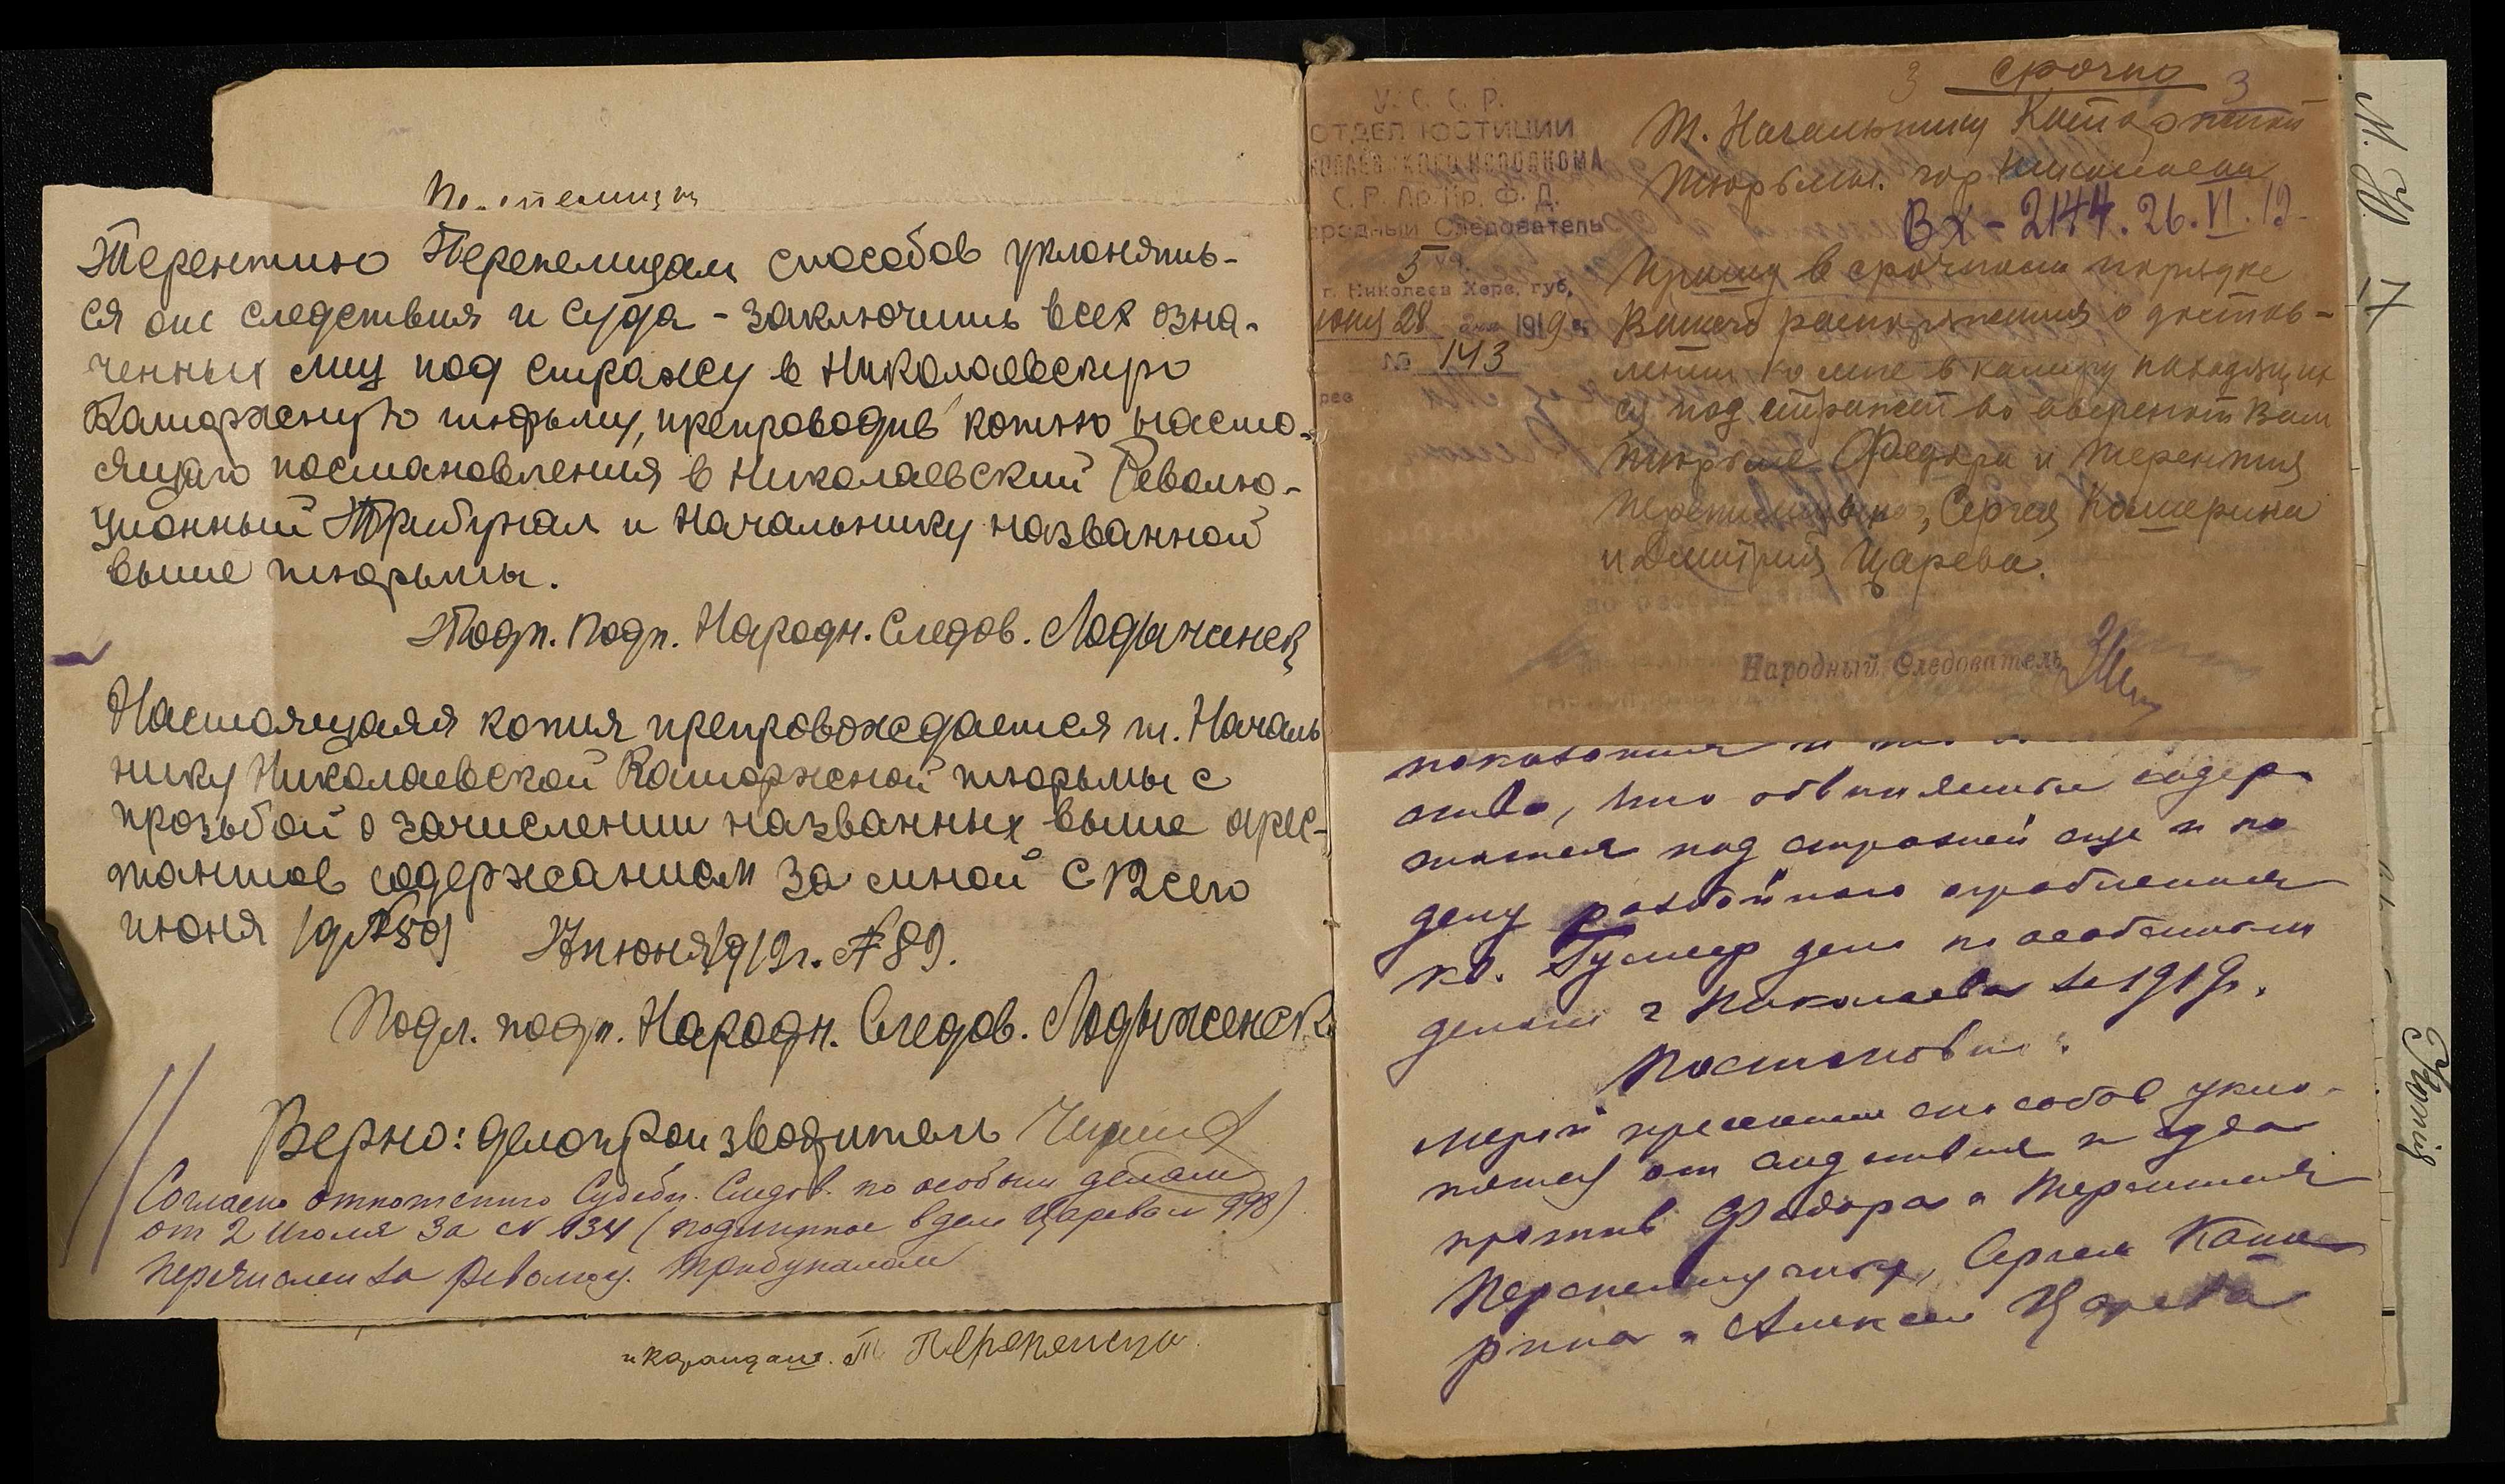 Терентию Перепелицам способов уклонять-
ся от следствия и суда - заключить всех озна-
ченных лиц под стражу в Николаевскую
Каторжную тюрьму, препроводив копию насто-
ящаго постановления в Николаевский Револю-
ционный Трибунал и Начальнику названной
выше тюрьмы.
Подп. Народн. Следов. Лодыженск
Настоящая копия препровождается т. Началь
нику Николаевской Каторжной тюрьмы с
прозьбой о зачислении названных выше арес-
тантов содержанием за мной с 12 сего
июня
июня 1919 г. № 89.
Подл. подп. Народн. Следов. Лодыженск
Верно: делопроизводитель
Согласно отношению Судебн. Следов. по особым делам
от 2 Июля за № 134 (подлинное в деле Царева № 998)
перечислен за Революц. трибуналом
и карандаш. Т Перепелица
срочно
3 3
У. С. С. Р.
ОТДЕЛ ЮСТИЦИИ
ИСПОЛКОМА
С. Р. Кр. Ф. Д.
Народный Следователь
5 уч.
г. Николаев Херс. губ.
июня 28 дня 1919 г.
№ 143
Т. Начальнику Каторжной
тюрьмы. гор Николаева
Вх - 2144. 26. VI. 19
Прошу в срочном порядке
Вашего распоряжения о достав-
лении ко мне в камеру находящих
ся под стражей во вверенной Вам
тюрьме Федора и Терентия
Сергея Кашерина
и Дмитрия Царева.
Народный Следователь
показания
ство, что обвиняемые содер
жатся под стражей еще и по
делу разбойного ограбления
кв. дело по особенным
делам г Николаева за 1919 г.
Постановил:
мерой пресечения способов укло-
няться от следствия и суда
против Федора и Терентия
Сергея Каше
рина и Алексея Царева